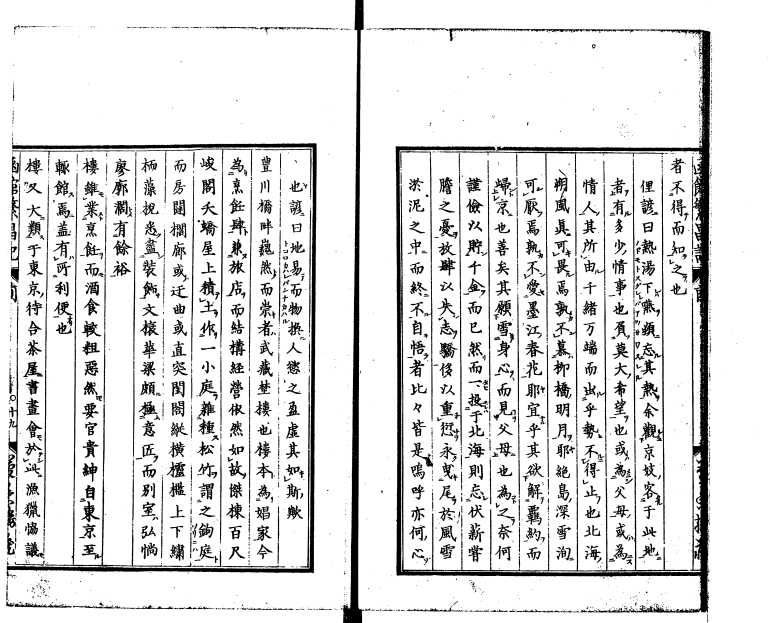 者不得而知之也
俚諺曰熱湯下燕頭忘其熱余觀京妓客于此地
者有多少情事也負莫大希望也或為父母或為
情人其所由千緒万端而出乎勢不得止也北海
朔風真可畏焉孰不慕柳橋明月耶絕島深雪洵
可厭焉孰不愛墨江春花耶宜乎其欲解羈約而
歸京也善矣其願雪身心而見父母也為之奈何
謹儉以貯千金而已然而一投于北海則忘伏薪嘗
膽之憂放肆以失志驕侈以重愆永曳尾於風雪
淤泥之中而終不自悟者比々皆是嗚呼亦何心
也諺曰地易而物換人慾之盈虛其如斯歟
豊川橋畔巍然而崇者武藏埜樓也樓本為娼家今
為烹飪肆兼旅店而結構經營依然如故傑棟百尺
峻閣夭矯屋上積土作一小庭雜種松竹謂之鉤庭
而房闥欄廊或迂曲或直突閨閤縱橫欞檻上下繡
柄藻梲悉盡裝飾文榱華梁頗極意匠而別室弘惝
廖廓濶有餘裕
樓雖業烹飪而酒食較粗惡然要官貴紳自東京至
輙館焉盖有所利便也
樓又大類于東京待合茶屋書畫會於此漁獵恊議
函館繁昌記